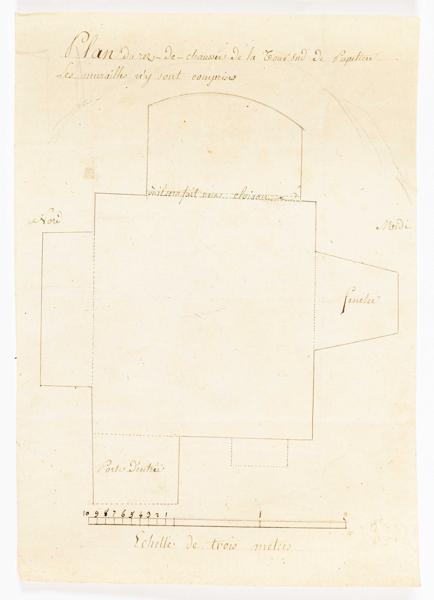 Plan du rez-de-chaussée de la Tour sud de
Les murailles n'y sont comprises
Nord
Midi
fenetre
Porte D'entrée
10 9 8 7 6 5 4 3 2 1 1 2
Echelle de trois metres